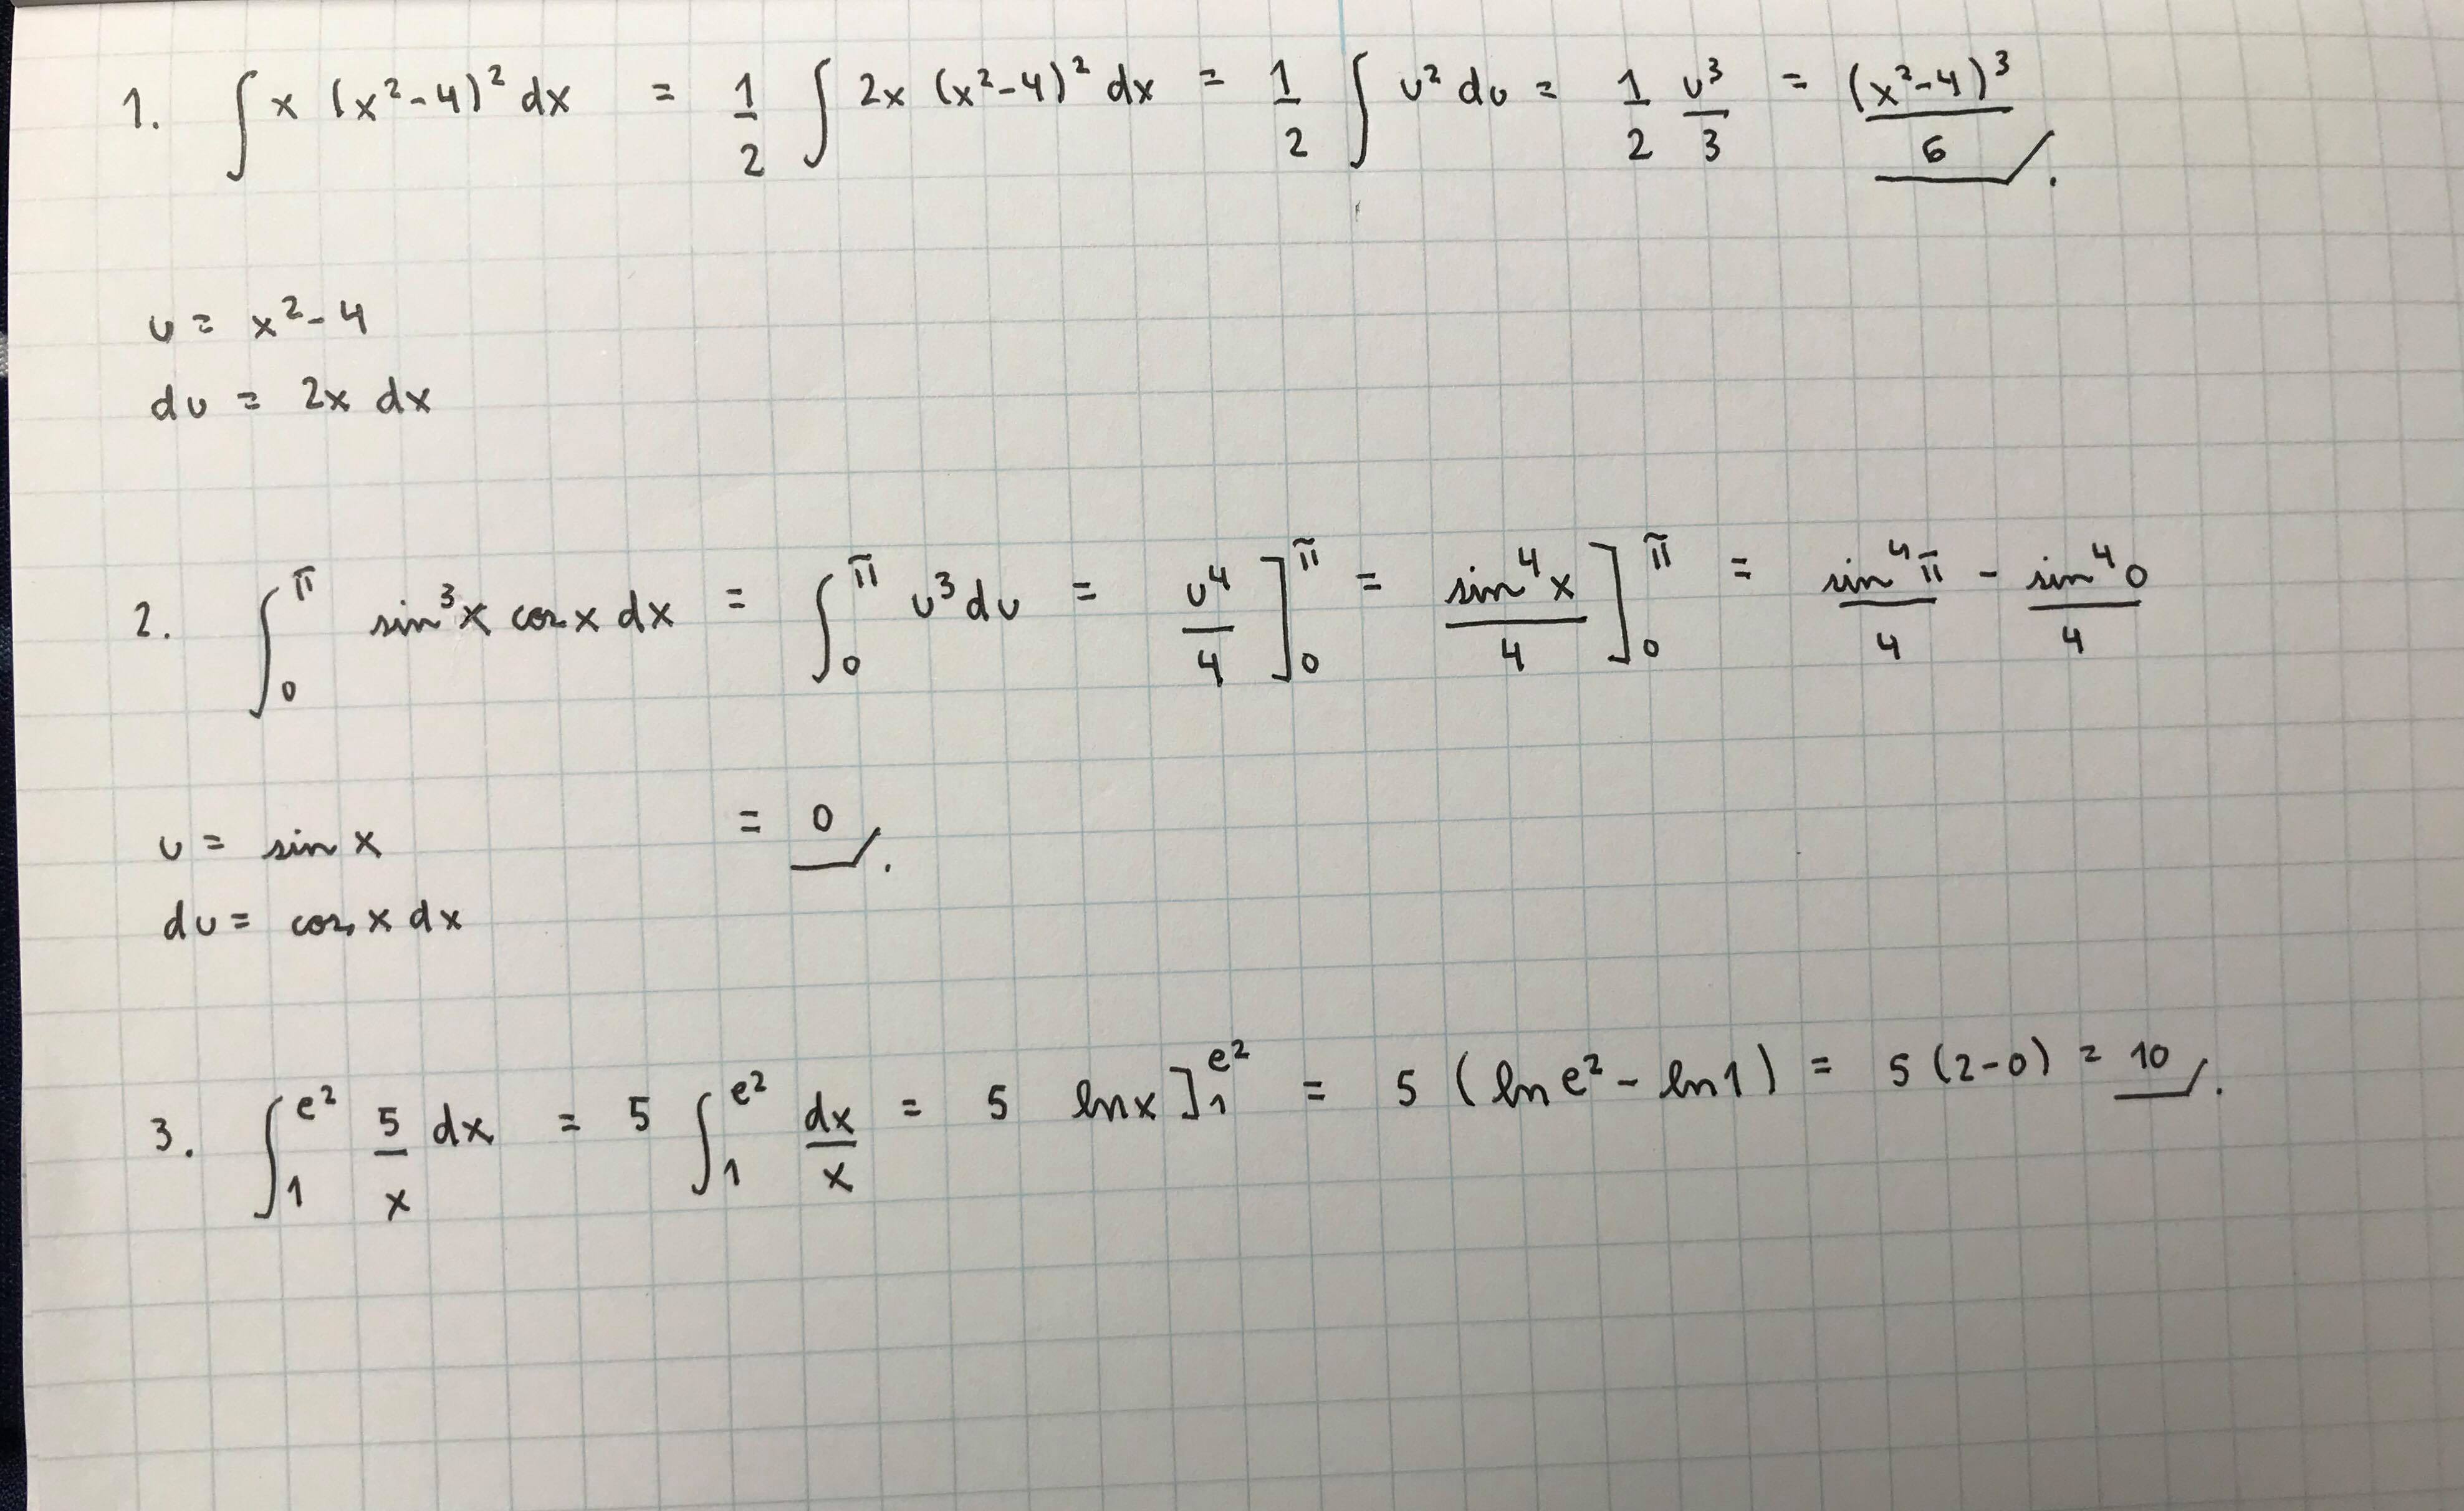 1. ∫ x (x²-4)² dx = 1/2 ∫ 2x (x²-4)² dx = 1/2 ∫ u² du = 1/2 u³/3 = (x²-4)³/6 .
u = x²-4
du = 2x dx
2. ∫₀^π sin³x cos x dx = ∫₀^π u³ du = u⁴/4 ]₀^π = sin⁴x/4 ]₀^π = sin⁴π/4 - sin⁴0/4
u = sin x = 0 .
du = cos x dx
3. ∫₁^e² 5/x dx = 5 ∫₁^e² dx/x = 5 ln x ]₁^e² = 5 (ln e² - ln 1) = 5 (2-0) = 10 .